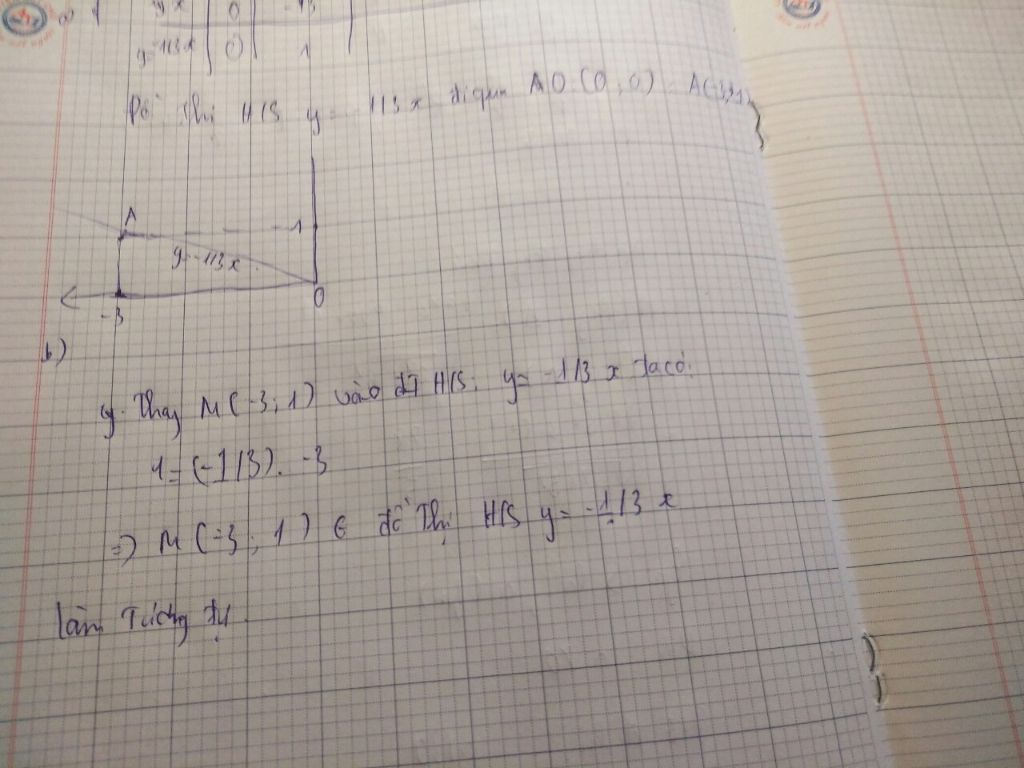 a)
x | 0 | -3
y=-1/3x | 0 | 1
Đồ thị H/S y = -1/3 x đi qua AO (0; 0) A(-3;1)
A
1
y=-1/3x
-3
O
b)
y. Thay M (-3; 1) vào đt H/S. y= -1/3 x Ta có:
1=(-1/3). -3
=> M (-3; 1) ∈ đồ Thị H/S y= -1/3 x
làm Tương tự